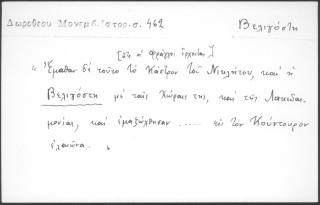 Δωροθέου Μονεμβ. Ἱστορ. σ. 462
Βελιγόστη
[ὅτι οἱ Φράγγοι ἔρχονται]
"Ἔμαθαν δὲ τοῦτο τὸ Κάστρον τοῦ Νικλήτου, καὶ ἡ
Βελιγόστη μὲ ταῖς Χώραις της, καὶ τῆς Λακεδαι-
μονίας, καὶ ἐμαζώχθησαν ...... εἰς τὸν Κούντουρον
ἐλαιῶνα.